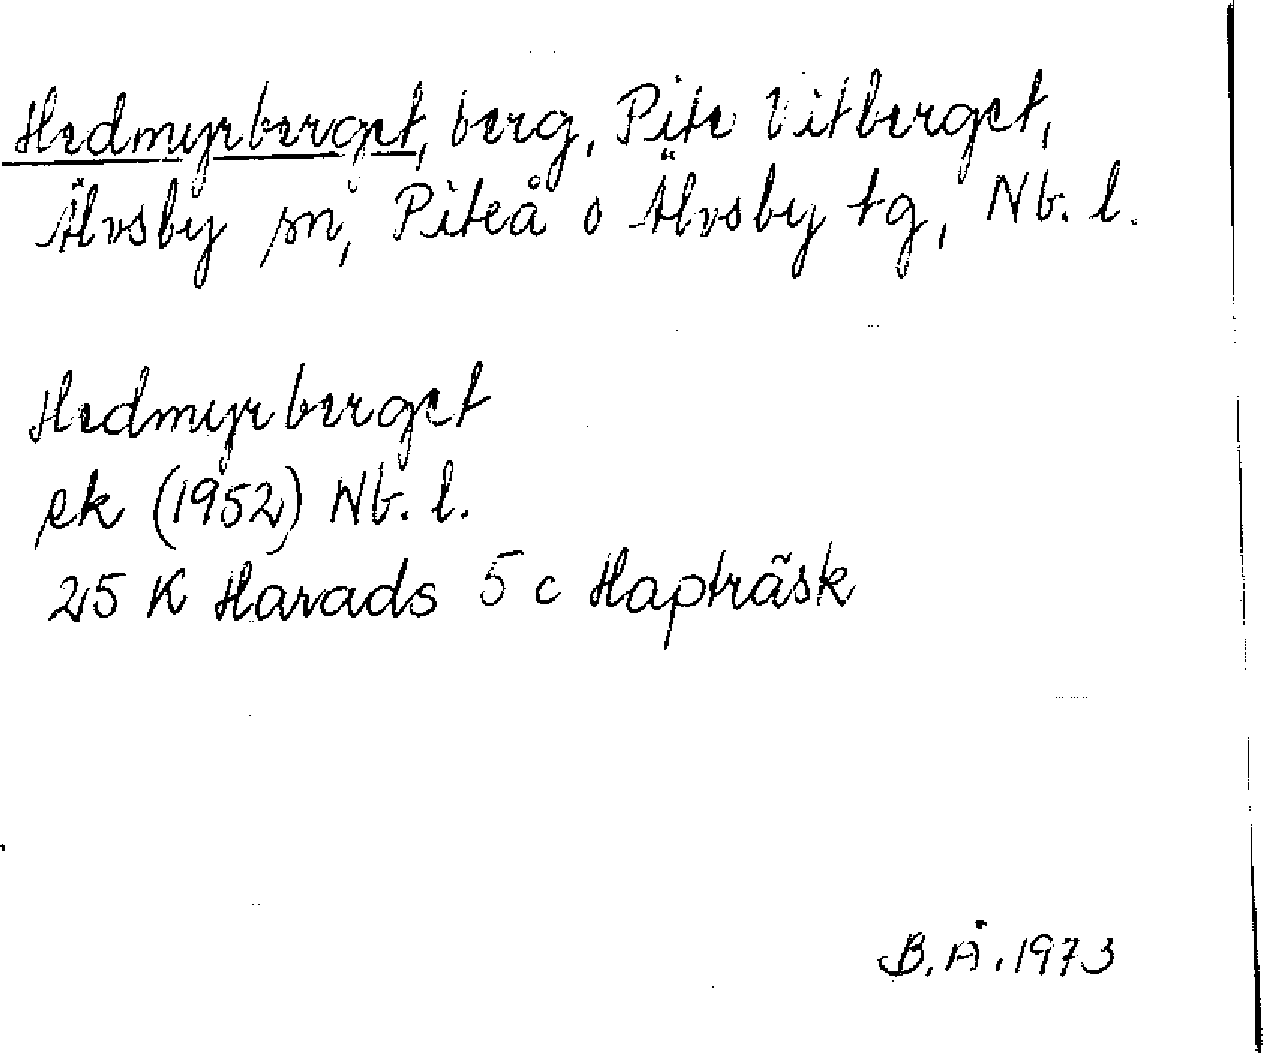 Hedmyrberget, berg, Pite Vitberget,
Älvsby sn, Piteå o Älvsby tg, Nb. l.
Hedmyrberget
ek (1952) Nb. l.
25 K Harads 5 c Hapträsk
B. Å. 1973